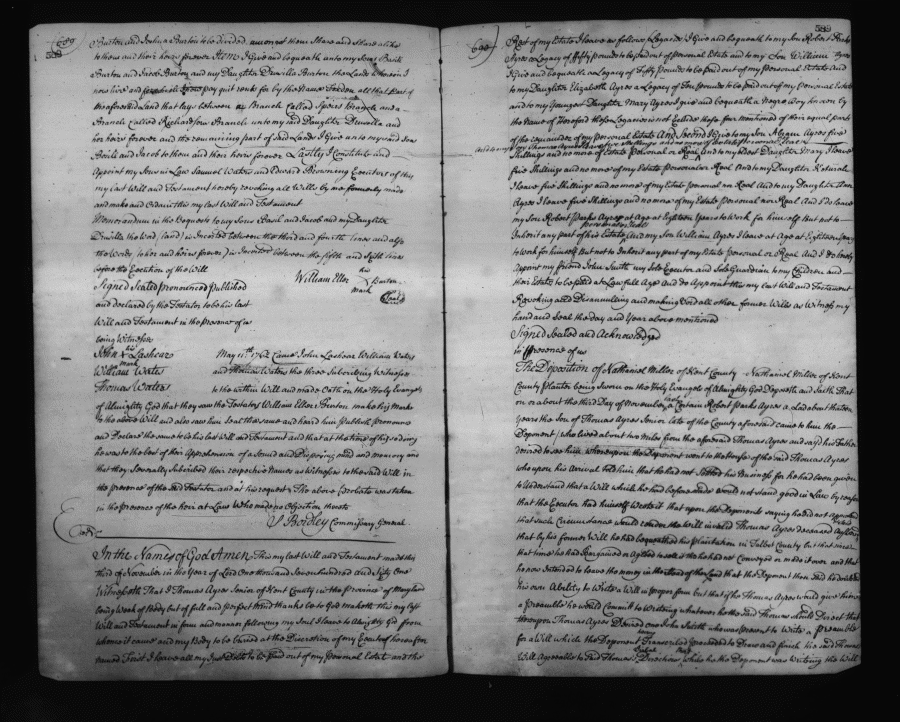 689
Burton and Joshua Burton to be divided amongst them Share and Share alike
to them and their heirs forever Item I Give and bequeath unto my Sons Basil
Burton and Jacob Burton and my Daughter Drucilla Burton the Land wherein I
now live and pay quit rents for by the Name all that part of
the aforesaid Land that lays between a Branch called Spicers Branch and a
Branch called Richardson Branch unto my said Daughter Drucilla and
her heirs forever and the remaining part of said Lands I Give unto my said Sons
Basil and Jacob to them and their heirs forever Lastly I Constitute and
Appoint my Sons in Law Samuel Waters and Edward Browning Executors of this
my last Will and Testament hereby revoking all Wills by me formerly made
and make and Ordain this my last Will and Testament
Memorandum in the Bequests to my Sons Basil and Jacob and my Daughter
Drucilla the word (Land) is Inserted between the third and fourth lines and also
the Words to her and heirs forever is Inserted between the fifth and Sixth lines
before the Execution of the Will
Signed Sealed pronounced published
and declared by the Testator to be his last
Will and Testament in the presence of us
being Witnesses
William Ellor his mark Burton
Seal
John his mark Lashear
William Wates
Thomas Wates
May 11th 1762 Came John Lashear William Wates
and Thomas Wates the three Subscribing Witnesses
to the within Will and made Oath on the Holy Evangels
of Almighty God that they saw the Testator William Ellor Burton make his Mark
to the above Will and also saw him Seal the same and heard him Publish pronounce
and Declare the same to be his last Will and Testament and that at the time of his so doing
he was to the best of their Apprehension of a Sound and Disposing mind and memory and
that they Severally Subscribed their respective Names as Witnesses to the said Will in
the presence of the said Testator and at his request The above Probate was taken
in the presence of the heir at Law Who made no Objection thereto
J Bordley Commissary General
In the Names of God Amen This my last Will and Testament made this
third of November in the Year of Lord One thousand Seven hundred and Sixty One
Witnesseth That I Thomas Ayres Senior of Kent County in the province of Maryland
being Weak of Body but of full and perfect mind thanks be to God maketh this my last
Will and Testament in form and manner following my Soul I leave to Almighty God from
whence it came and my Body to be Buried at the Discretion of my Executor hereafter
named First I leave all my Just Debts to be paid out of my personal Estate and the
690
Rest of my Estate I leave as follows Legacies I Give and bequeath to my Son Robert Parks
Ayres a Legacy of fifty pounds to be paid out of personal Estate and to my Son William Ayres
I give and bequeath a Legacy of Fifty pounds to be paid out of my personal Estate And
to my Daughter Elizabeth Ayres a Legacy of Ten pounds to be paid out of my personal Estate
and to my Youngest Daughter Mary Ayres I give and bequeath a Negroe Boy known by
the Name of Hereford these Legacies is not Exclude these four mentioned of their equal parts
of the remainder of my personal Estate And Second I Give to my Son Abram Ayres five
and to my Son Thomas Ayres I leave five Shillings and no more of Estate personal or Real
Shillings and no more of Estate personal or Real And to my Eldest Daughter Mary I leave
five Shillings and no more of my Estate personal or Real And to my Daughter
I leave five Shillings and no more of my Estate personal nor Real And to my Daughter Ann
Ayres I leave five Shillings and no more of my Estate personal nor Real And I do leave
my Son Robert Parks Ayres at Age at Eighteen Years to Work for himself But not to
Inherit any part of his Estate And my Son William Ayres I leave at Age at Eighteen Years
to work for himself But not to Inherit any part of my Estate personal or Real And I do hereby
Appoint my friend John Smith my Sole Executor and Sole Guardian to my Children and
their Estate to be paid at Lawfull Age And do Appoint this my last Will and Testament
Revoking and Disannulling and making Void all other former Wills as Witness my
hand and Seal the day and Year above mentioned
Signed Sealed and Acknowledged
in Presence of us
The Deposition of Nathaniel Miller of Kent County Nathaniel Miller of Kent
County Planter being Sworn on the Holy Evangels of Almighty God Deposeth and Saith That
on or about the third Day of November a Certain Robert Parks Ayres a Lad about thirteen
years the Son of Thomas Ayres Senior late of the County aforesaid came to him the
Deponent (who lived about two miles from the aforesaid Thomas Ayres and says) his Father
desired to see him whereupon the Deponent went to the house of the said Thomas Ayres
who upon his Arrival told him that he had not settled his Business for he had been given
to Understand that a Will which he had before made would not stand good in Law by reason
that the Executor had himself wrote it that upon the Deponents saying he did not apprehend
that such Circumstance would render the Will invalid Thomas Ayres deceased replied
that by his former Will he had bequeathed his plantation in Talbot County but that since
that time he had Bargained or Agreed to sell it tho he had not Conveyed or made it over and that
he now Intended to leave the money in the stead of the Land that the Deponent then said he doubted
his own Ability to Write a Will in proper form but that if he Thomas Ayres would give him
a preamble he would Commit to Writing whatever he the said Thomas should Direct that
thereupon Thomas Ayres Desired one John Smith who was present to Write a preamble
for a Will which the Deponent having Transcribed proceeded to Draw and finish the said Thomas
Will Agreeable to said Thomas's Directions while he the Deponent was Writing the Will